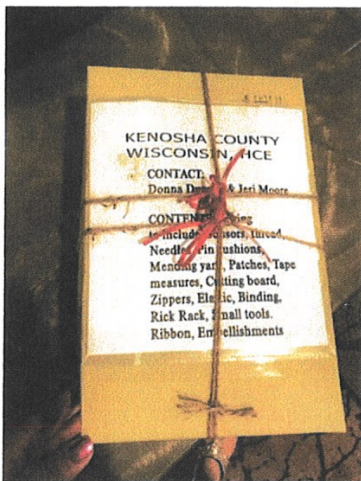 KENOSHA COUNTY
WISCONSIN, HCE
CONTACT:
Donna & Jeri Moore
CONTENTS:
to include thread,
Needles, Pin cushions,
Mending yarn, Patches, Tape
measures, Cutting board,
Zippers, Elastic, Binding,
Rick Rack, Small tools.
Ribbon, Embellishments